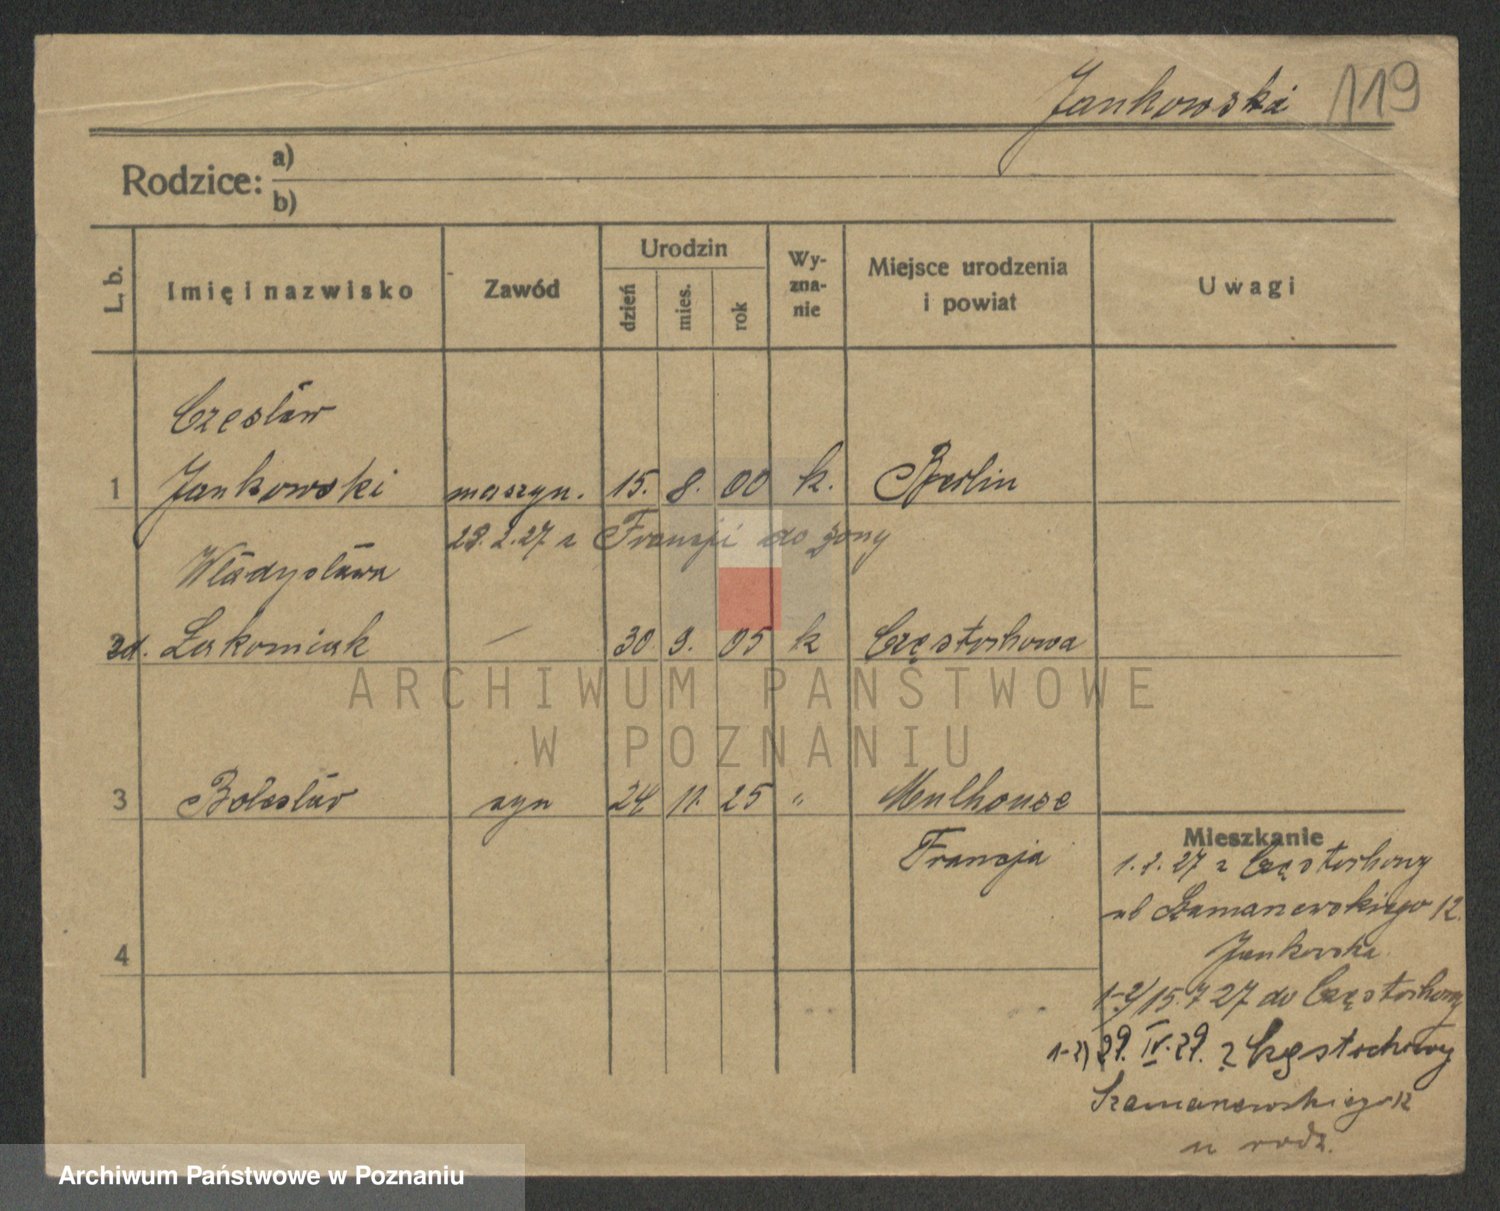 Jankowski 119
Rodzice: a)
b)
L. b. Imię i nazwisko Zawód Urodzin dzień mies. rok Wy-zna-nie Miejsce urodzenia i powiat Uwagi
Czesław
1 Jankowski maszyn. 15. 8. 00 k. Berlin
23.2.27 z Francji do żony
Władysława
zd. Łakomiak — 30 9. 05 k Częstochowa
ARCHIWUM PAŃSTWOWE
W POZNANIU
3 Bolesław syn 24. 11. 25 " Mulhouse
Francja
Mieszkanie
1.2.27 z Częstochowy
ul Szamarzewskiego 12.
Jankowska
4
1-2/15.7 27 do Częstochowy
1-2) 29. IV. 29. z Częstochowy
Szamarzewskiego 12
u rodz.
Archiwum Państwowe w Poznaniu